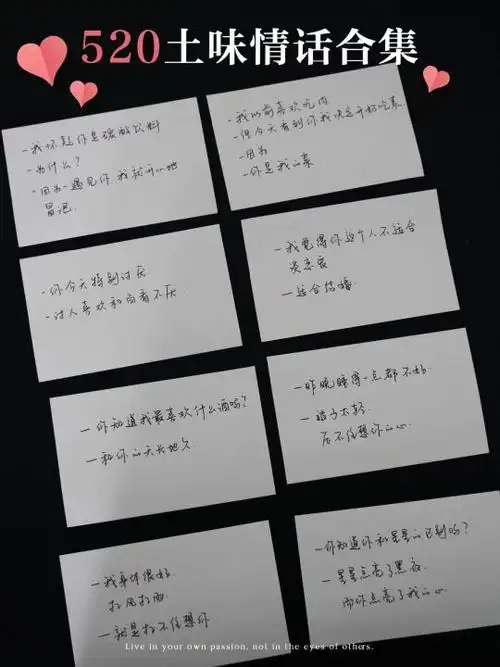 520土味情话合集
-我怀疑你是碳酸饮料
-为什么?
-因为一遇见你 我就开心地
冒泡.
-我以前喜欢吃肉
-但今天看到你我决定开始吃素.
-因为
-你是我的菜
-你今天特别讨厌
-讨人喜欢和百看不厌
-我觉得你这个人不适合
谈恋爱
-适合结婚
-你知道我最喜欢什么酒吗?
-和你的天长地久
-昨晚睡得一点都不好
-被子太轻.
压不住想你的心.
-我身体很好.
扛风扛雨.
-就是扛不住想你
-你知道你和星星的区别吗?
-星星点亮了黑夜.
而你点亮了我的心.
Live in your own passion, not in the eyes of others.